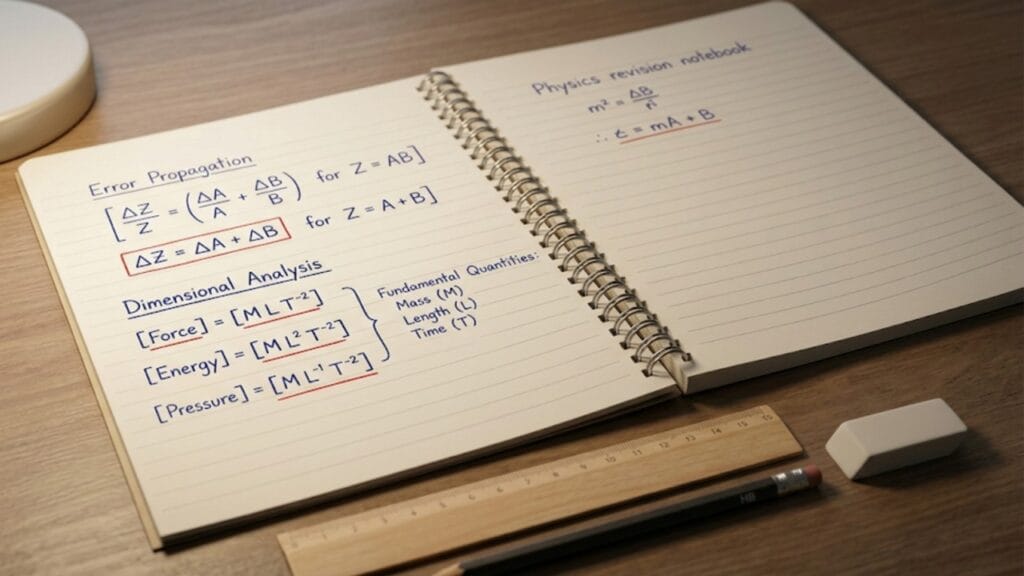 Error Propagation
[ΔZ/Z = (ΔA/A + ΔB/B) for Z = AB]
ΔZ = ΔA + ΔB for Z = A + B]
Dimensional Analysis
[Force] = [M L T⁻²]
[Energy] = [M L² T⁻²]
[Pressure] = [M L⁻¹ T⁻²]
Fundamental Quantities:
Mass (M)
Length (L)
Time (T)
Physics revision notebook
m² = ΔB/
∴ = mA + B
1 2 3 4 5 6 7 8 9 10 11 12 13 14 15
HB